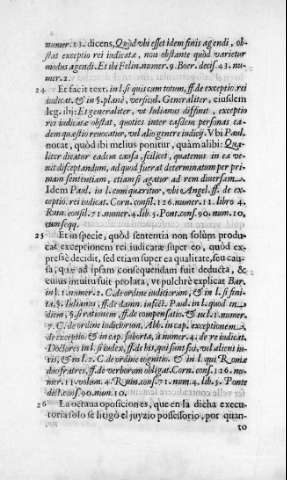 numer.13. dicens, Quòd vbi esset idem finis agendi, ob-
stat exceptio rei iudicatæ, non obstante quòd varietur
modus agendi. Et ibi Felin. numer. 9. Boer. decis. 43. nu-
mer. 2.
24 Et facit text. in l. si quis cum totum, ff. de exceptio rei
iudicat. & in §. planè, versicul. Generaliter, eiusdem
leg. ibi: Et generaliter, vt Iulianus diffinit, exceptio
rei iudicatæ obstat, quoties inter easdem personas ea-
dem quæstio reuocatur, vel alio genere iudicij. Vbi Paul.
notat, quòd ibi melius ponitur, quàm alibi: Qua-
liter dicatur eadem causa, scilicet, quatenus in ea ve-
nit disceptandum, id quod fuerat determinatum per pri-
mam sententiam, etiam si agatur ad rem diuersam.
Idem Paul. in l. cum quæritur, vbi & Angel. ff. de ex-
ceptio. rei iudicat. Corn. consil. 126. numer. 11. libro 4.
Ruin. consil. 71. numer. 4. lib. 5. Pont. cons. 90. num. 10.
cum seqq.
25 Et in specie, quòd sententia non solùm produ-
cat exceptionem rei iudicatæ super eo, quòd ex-
pressè decidit, sed etiam super ea qualitate, seu cau-
sa, quæ ad ipsam consequendam fuit deducta, &
cuius intuitu fuit prolata, vt pulchrè explicat Bar.
in l. 1. numer. 2. C. de ordine iudiciorum, & in l. si fini-
ta, §. Iulianus, ff. de damn. infect. Paul. in l. quod in
diem, §. si rationem, ff. de compensatio. & in l. 1. numer.
7. C. de ordine iudiciorum, Alb. in cap. exceptionem,
de exceptio. & in cap. suborta, à numer. 4. de re iudicat.
Doctores in l. si iudex, ff. de his, qui sunt sui, vel alieni iu-
ris, & in l. 2. C. de ordine cognitio. & in l. qui Romæ
duo fratres, ff. de verborum obligat. Corn. cons. 126. nu-
mer. 11. volum. 4. Ruin. cons. 71. num. 4. lib. 5. Ponte
dict. cons. 90. num. 10.
26 La octaua oposicion es, que en la dicha execu-
toria solo se litigò el juyzio possessorio, por quan-
to